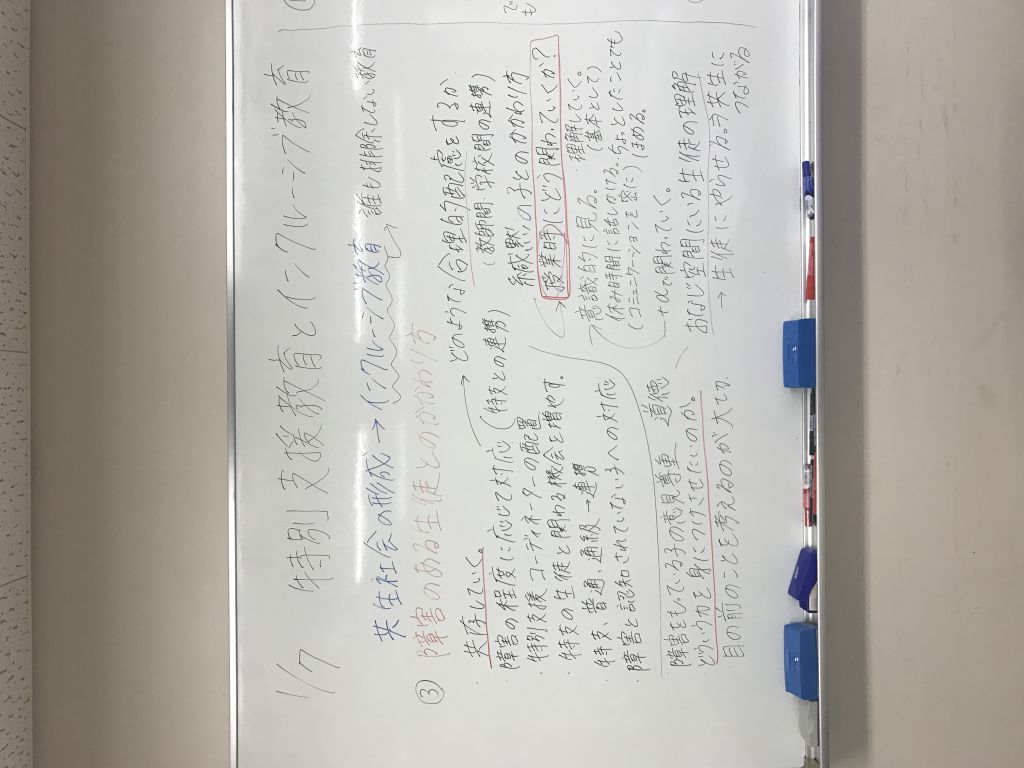 1/7 特別支援教育とインクルーシブ教育
共生社会の形成→インクルーシブ教育 → 誰も排除しない教育
③ 障害のある生徒とのかかわり方
・共存していく。
・障害の程度に応じて対応（特支との連携）
・特別支援コーディネーターの配置
・特支の生徒と関わる機会を増やす。
・特支、普通、通級→連携
・障害と認知されていない子への対応
・障害をもっている子の意見尊重 道徳
どういう力を身につけさせたいのか。
・目の前のことを考えるのが大切。
→どのような合理的配慮をするか
（教師間、学校間の連携）
・緘黙の子とのかかわり方
→授業時にどう関わっていくか?
→意識的に見る。・理解していく。
（休み時間に話しかける。
（基本として）
（コミュニケーションを密に）
ちょっとしたことでも
ほめる。
+αで関わていく。
おなじ空間にいる生徒の理解
→生徒にやらせる。⇒共生に
つながる
でも